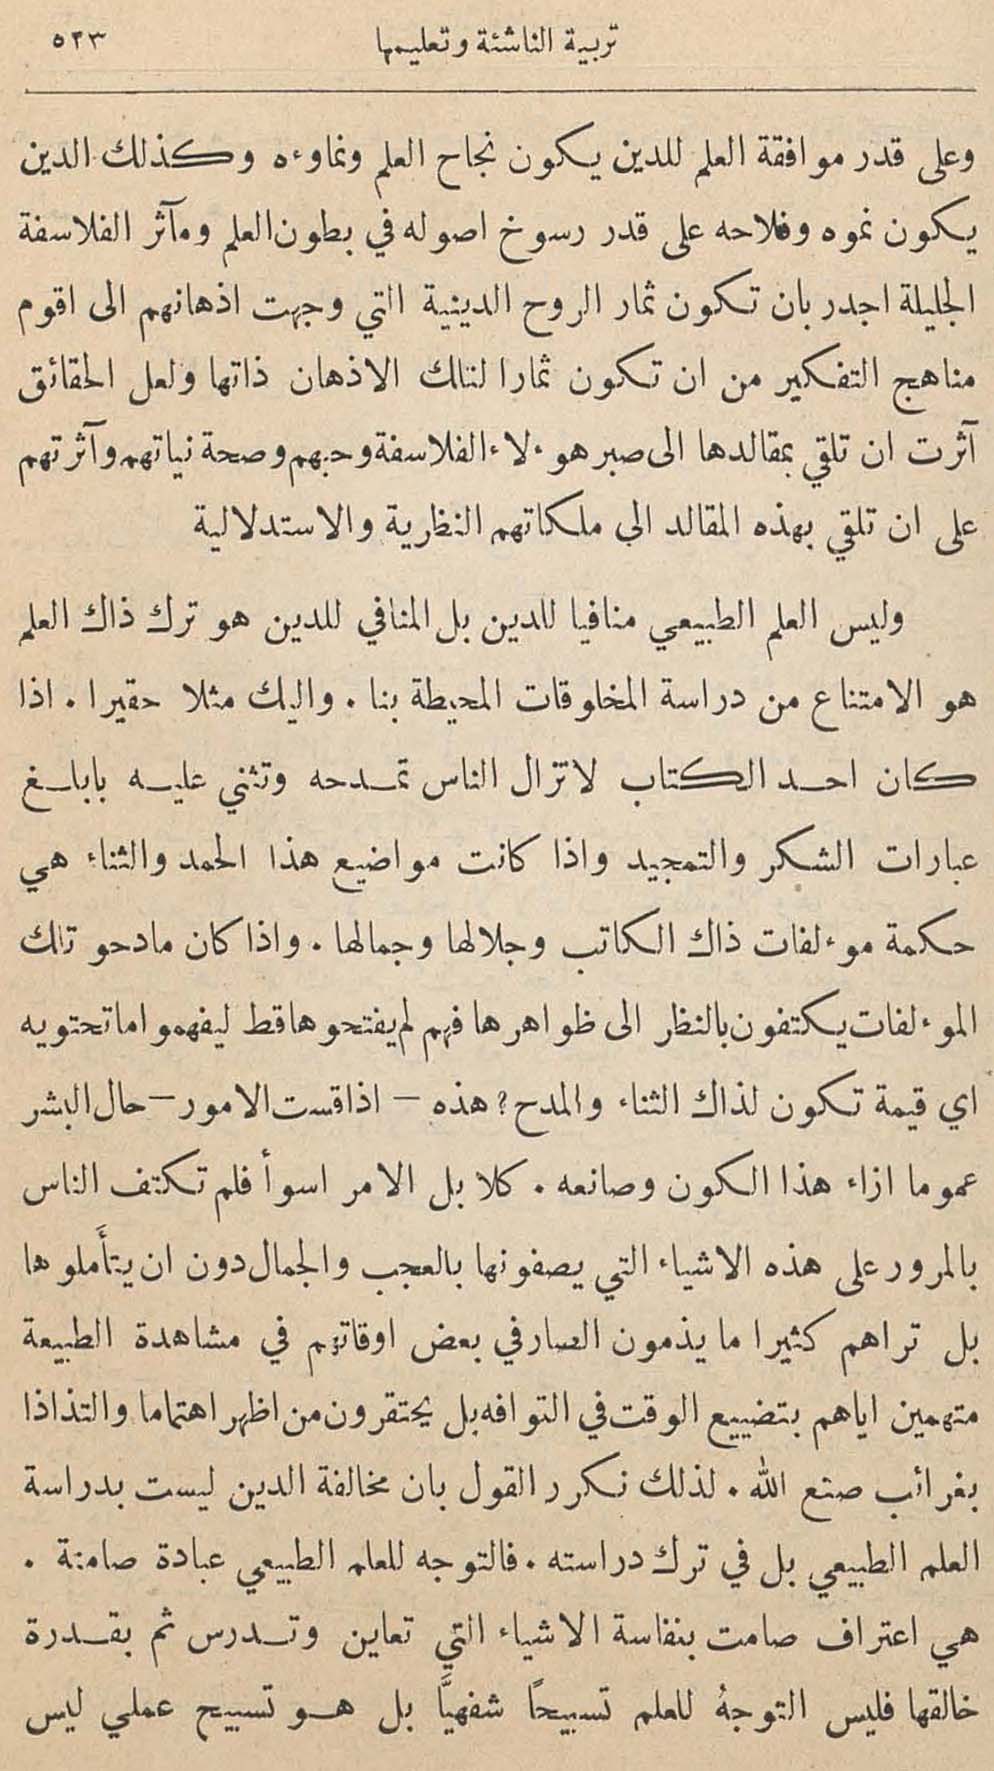 تربية الناشئة وتعليمها ٥٢٣
وعلى قدر موافقة العلم للدين يكون نجاح العلم ونماوءه وكذلك الدين
يكون نموه وفلاحه على قدر رسوخ اصوله في بطون العلم ومآثر الفلاسفة
الجليلة اجدر بان تكون ثمار الروح الدينية التي وجهت اذهانهم الى اقوم
مناهج التفكير من ان تكون ثمارا لتلك الاذهان ذاتها ولعل الحقائق
آثرت ان تلقي بمقالدها الى صبر هوءلاء الفلاسفة وحبهم وصحة نياتهم وآثرتهم
على ان تلقي بهذه المقالد الى ملكاتهم النظرية والاستدلالية
وليس العلم الطبيعي منافيا للدين بل المنافي للدين هو ترك ذاك العلم
هو الامتناع من دراسة المخلوقات المحيطة بنا . واليك مثلا حقيرا . اذا
كان احد الكتاب لاتزال الناس تمدحه وتثني عليه بابلغ
عبارات الشكر والتمجيد واذا كانت مواضيع هذا الحمد والثناء هي
حكمة موءلفات ذاك الكاتب وجلالها وجمالها . واذا كان مادحو تلك
الموءلفات يكتفون بالنظر الى ظواهرها فهم لم يفتحوها قط ليفهموا ماتحتويه
اي قيمة تكون لذاك الثناء والمدح ؟ هذه — اذا قست الامور — حال البشر
عموما ازاء هذا الكون وصانعه . كلا بل الامر اسوأ فلم تكتف الناس
بالمرور على هذه الاشياء التي يصفونها بالعجب والجمال دون ان يتأملوها
بل تراهم كثيرا ما يذمون الصارفي بعض اوقاتهم في مشاهدة الطبيعة
متهمين اياهم بتضييع الوقت في التوافه بل يحتقرون من اظهر اهتماما والتذاذا
بغرائب صنع الله . لذلك نكرر القول بان مخالفة الدين ليست بدراسة
العلم الطبيعي بل في ترك دراسته . فالتوجه للعلم الطبيعي عبادة صامتة .
هي اعتراف صامت بنفاسة الاشياء التي تعاين وتدرس ثم بقدرة
خالقها فليس التوجهُ للعلم تسبيحًا شفهيًّا بل هو تسبيح عملي ليس